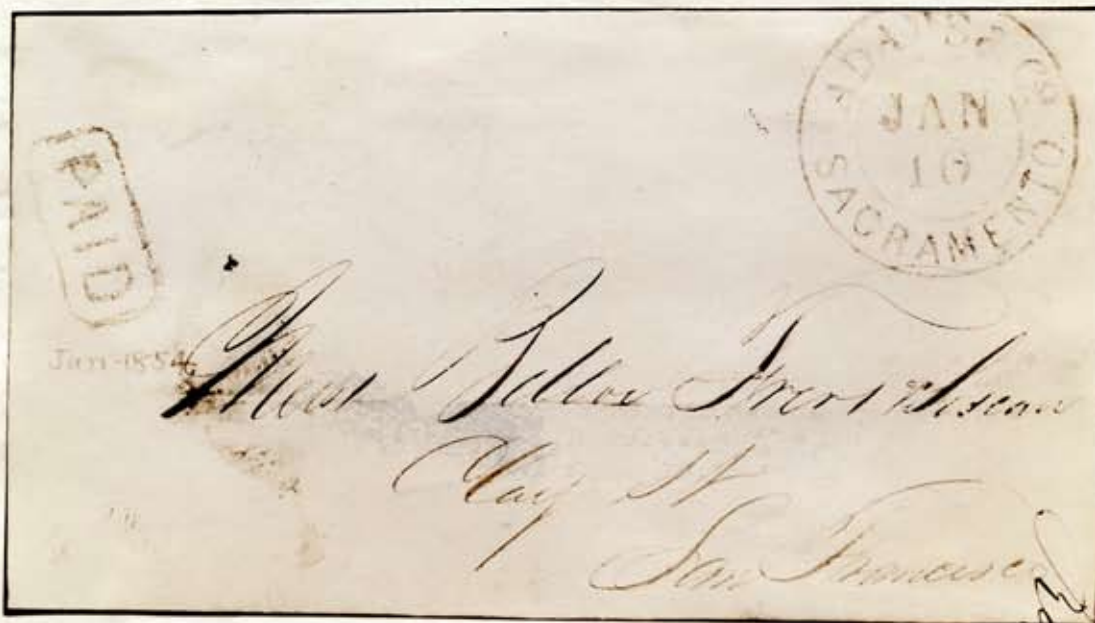 ADAMS & Co
JAN
10
SACRAMENTO
PAID
Jan-1854
Mess Belloc Frers
Clay St
San Francisco